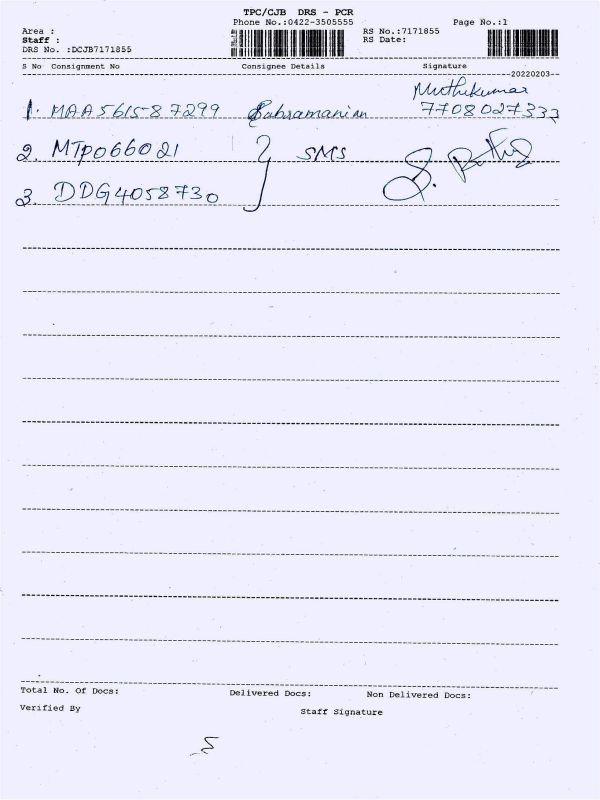 TPC/CJB DRS - PCR
Phone No.:0422-3505555 Page No.:1
Area : RS No.:7171855
Staff : RS Date:
DRS No. :DCJB7171855
S No Consignment No Consignee Details Signature
20220203
Muthukumar
1. MAA561587299 Subramanian 7708027333
2. MTP066021 SMS
3. DDG4058730
Total No. Of Docs: Delivered Docs: Non Delivered Docs:
Verified By Staff Signature